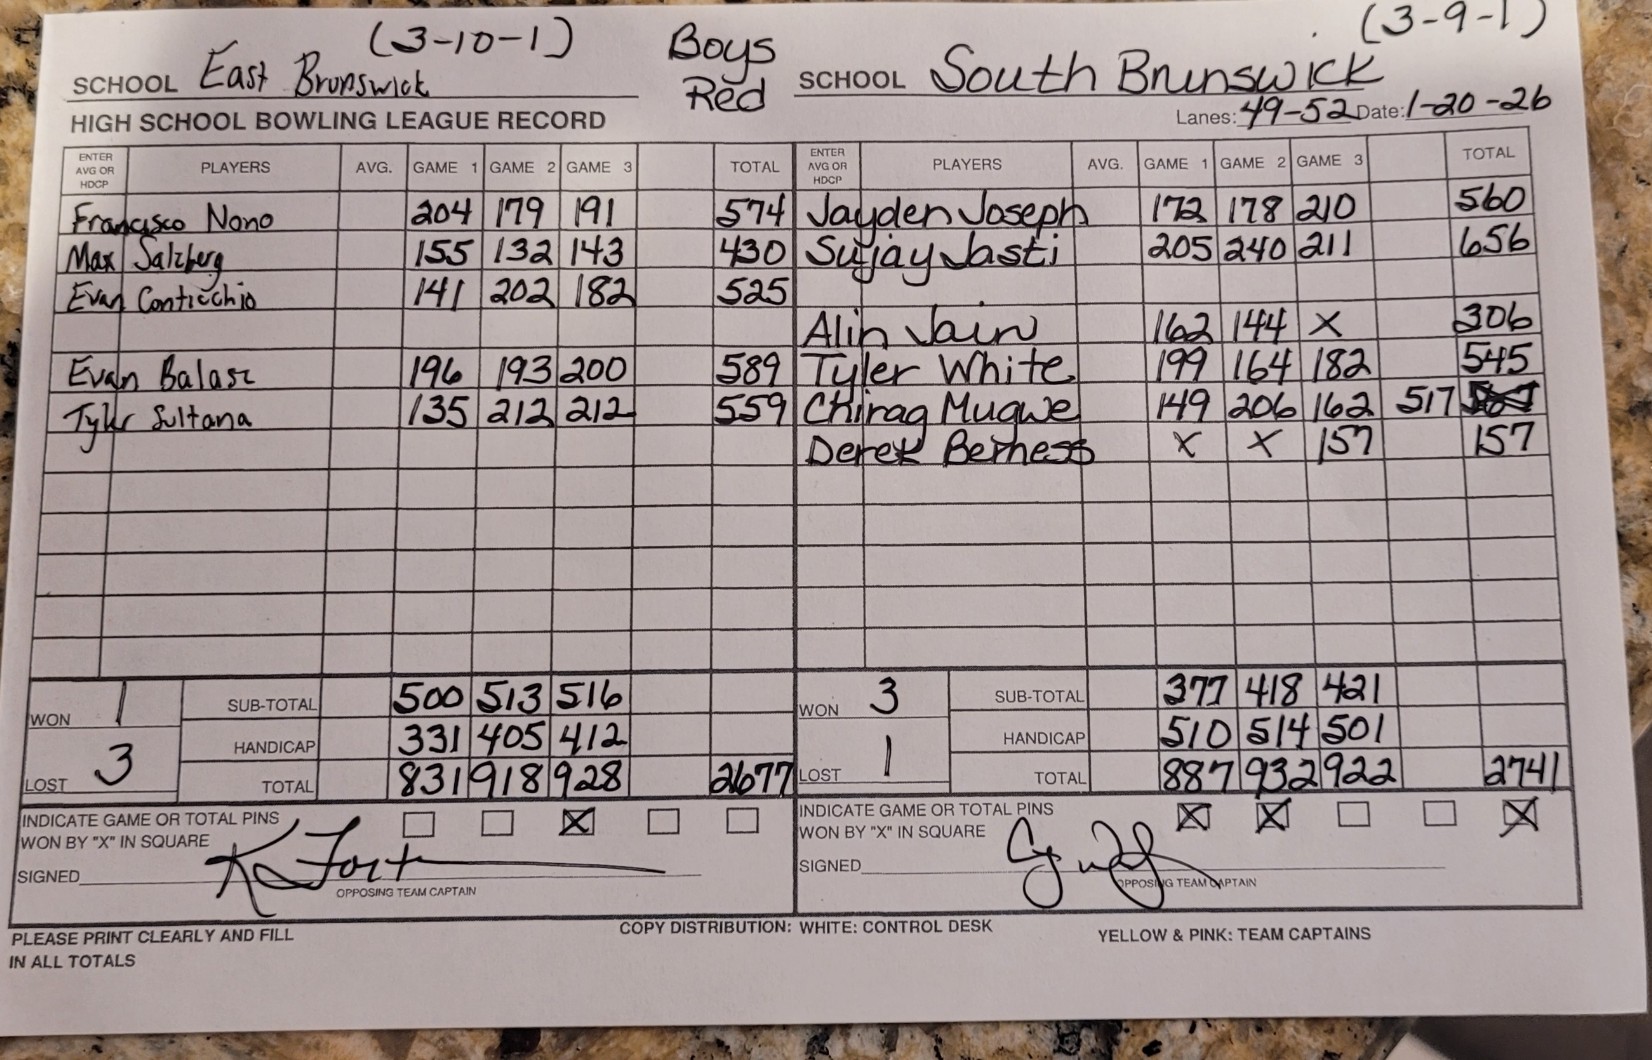 (3-10-1) Boys (3-9-1)
SCHOOL East Brunswick Red SCHOOL South Brunswick
HIGH SCHOOL BOWLING LEAGUE RECORD Lanes: 49-52 Date: 1-20-26
ENTER AVG OR HDCP PLAYERS AVG. GAME 1 GAME 2 GAME 3 TOTAL ENTER AVG OR HDCP PLAYERS AVG. GAME 1 GAME 2 GAME 3 TOTAL
Francisco Nono 204 179 191 574 Jayden Joseph 172 178 210 560
Max Salzberg 155 132 143 430 Sujay Jasti 205 240 211 656
Evan Conticchio 141 202 182 525
Alin Jain 162 144 X 306
Evan Balasz 196 193 200 589 Tyler White 199 164 182 545
Tyler Sultana 135 212 212 559 Chirag Mugwe 149 206 162 517
Derek Berness X X 157 157
WON 1 SUB-TOTAL 500 513 516 WON 3 SUB-TOTAL 377 418 421
HANDICAP 331 405 412 HANDICAP 510 514 501
LOST 3 TOTAL 831 918 928 2677 LOST 1 TOTAL 887 932 922 2741
INDICATE GAME OR TOTAL PINS WON BY "X" IN SQUARE X INDICATE GAME OR TOTAL PINS WON BY "X" IN SQUARE X X X
SIGNED K Fort SIGNED
OPPOSING TEAM CAPTAIN OPPOSING TEAM CAPTAIN
PLEASE PRINT CLEARLY AND FILL IN ALL TOTALS COPY DISTRIBUTION: WHITE: CONTROL DESK YELLOW & PINK: TEAM CAPTAINS